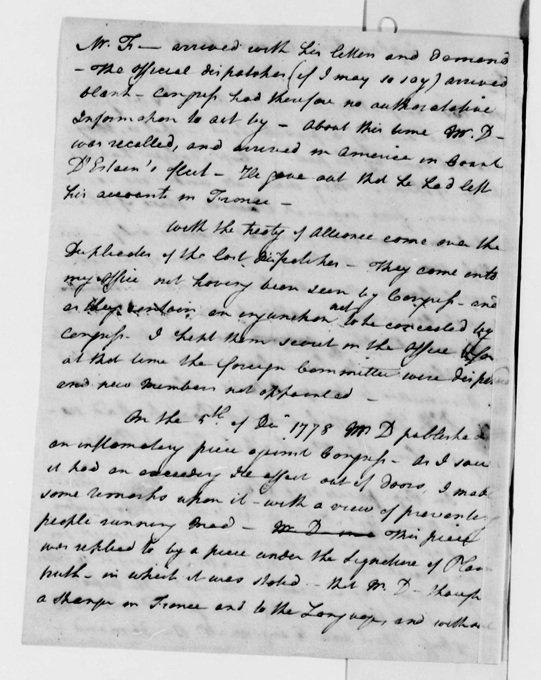 Mr. F— arrived with his letters and demand
– The official dispatches (if I may so say) arrived
blank – Congress had therefore no authoratative
Information to act by – About this time Mr. D–
was recalled, and arrived in America in Count
D'Estain's fleet – He gave out that he had left
his accounts in France –
With the treaty of Alliance come over the
Duplicates of the lost dispatches – They come into
my Office not having been seen by Congress – and
as they contain an injunction not to be concealed by
Congress I kept them secret in the Office
at that time the foreign Committee were
and new Members not appointed –
On the 5th of Decr 1778 Mr D published
an inflamatory piece against Congress – As I saw
it had an exceeding ill effect out of doors, I made
some remarks upon it – with a view of preventing
people running mad – This piece
was replied to by a piece under the Signature of Plain
truth – in which it was stated – that Mr. D– though
a stranger in France and to the Language, and without